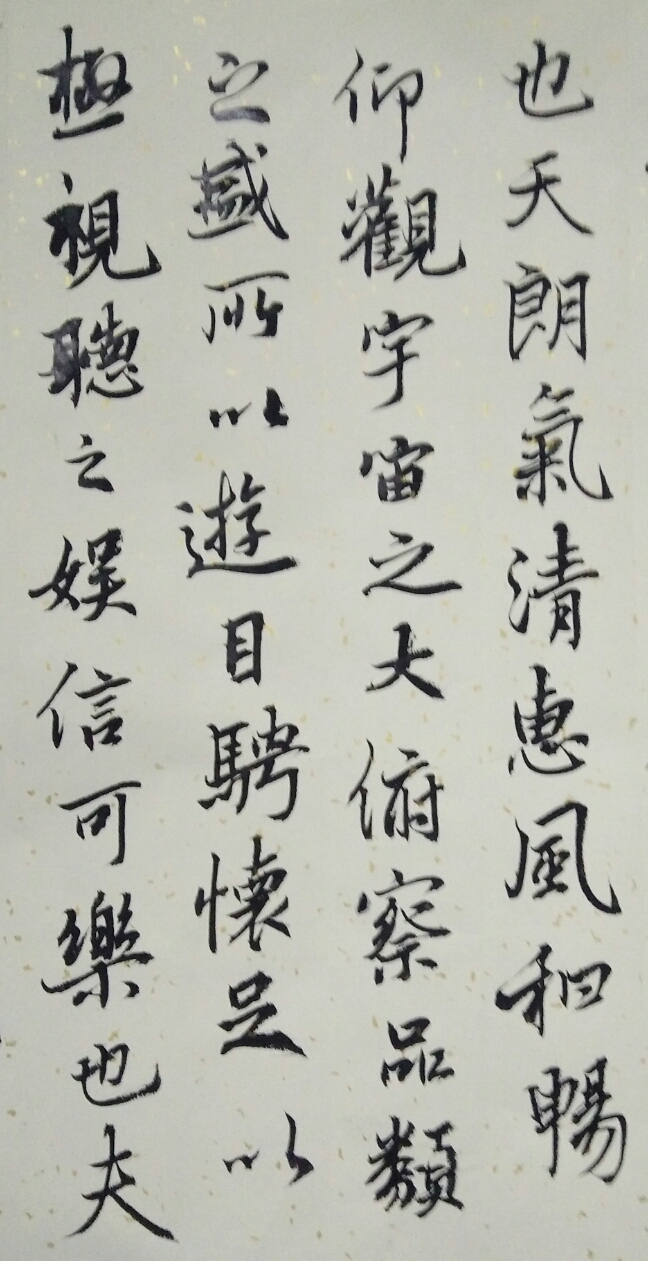 也天朗氣清惠風和暢
仰觀宇宙之大俯察品類
之盛所以遊目騁懷足以
極視聽之娛信可樂也夫